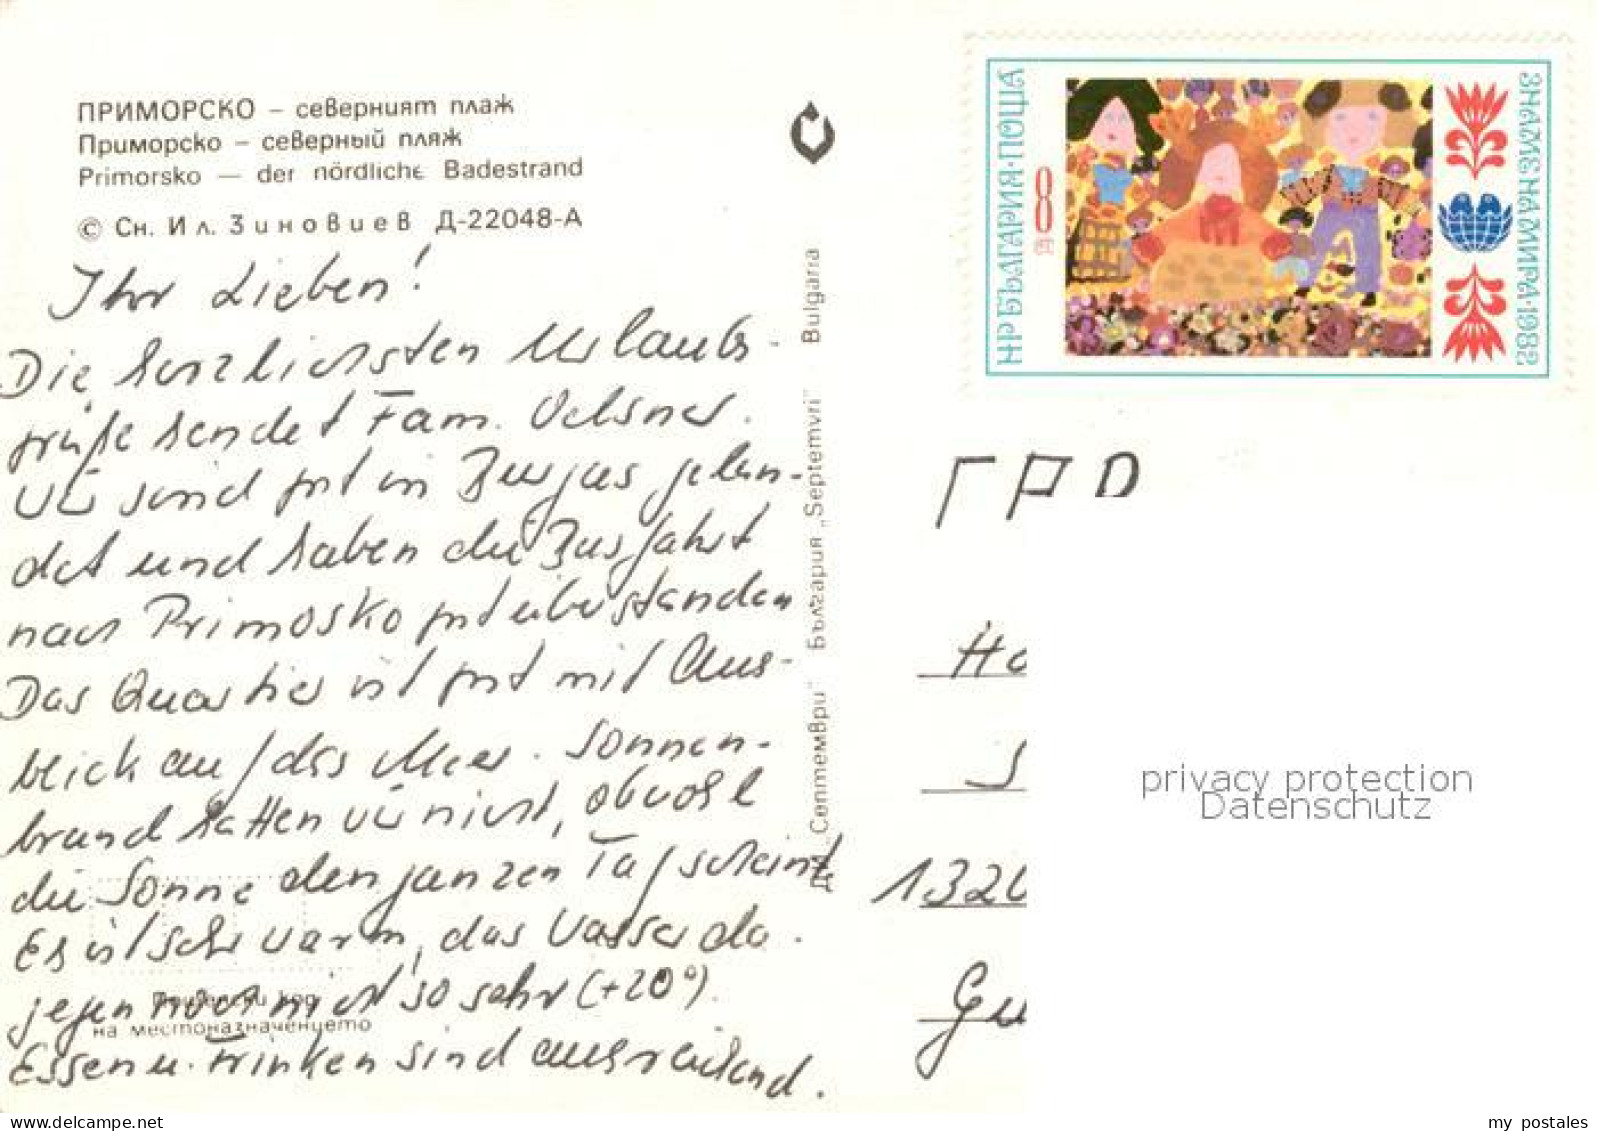 ПРИМОРСКО – северният плаж
Приморско – северный пляж
Primorsko — der nördliche Badestrand
© Сн. Ил. Зиновиев Д-22048-А
Ihr Lieben!
Die herzlichsten Urlaubs-
grüße sendet Fam. Oelsner.
Wir sind gut in Burgas gelan-
det und haben die Busfahrt
nach Primosko gut überstanden
Das Quartier ist gut mit Aus-
blick auf das Meer. Sonnen-
brand hatten wir nicht, obwohl
die Sonne den ganzen Tag scheint.
Es ist sehr warm, das Wasser da-
gegen noch nicht so sehr (+20°).
Essen u. Trinken sind ausreichend.
на местоназначението
ДИ „Септември“ България „Septemvri“ Bulgaria
НР БЪЛГАРИЯ·ПОЩА
8
ЗНАМЕ НА МИРА·1982
ГДР
Ha
S
1320
privacy protection
Datenschutz
my postales